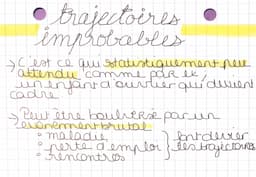 trajectoires
improbables
→ c'est ce qui statistiquement peu
attendu comme par ex,
un enfant d'ouvrier qui devient
cadre
→ Peut être boulversé par un
evenement brutal
° maladie
° perte d'emploi } font devier
° rencontres les trajectoires